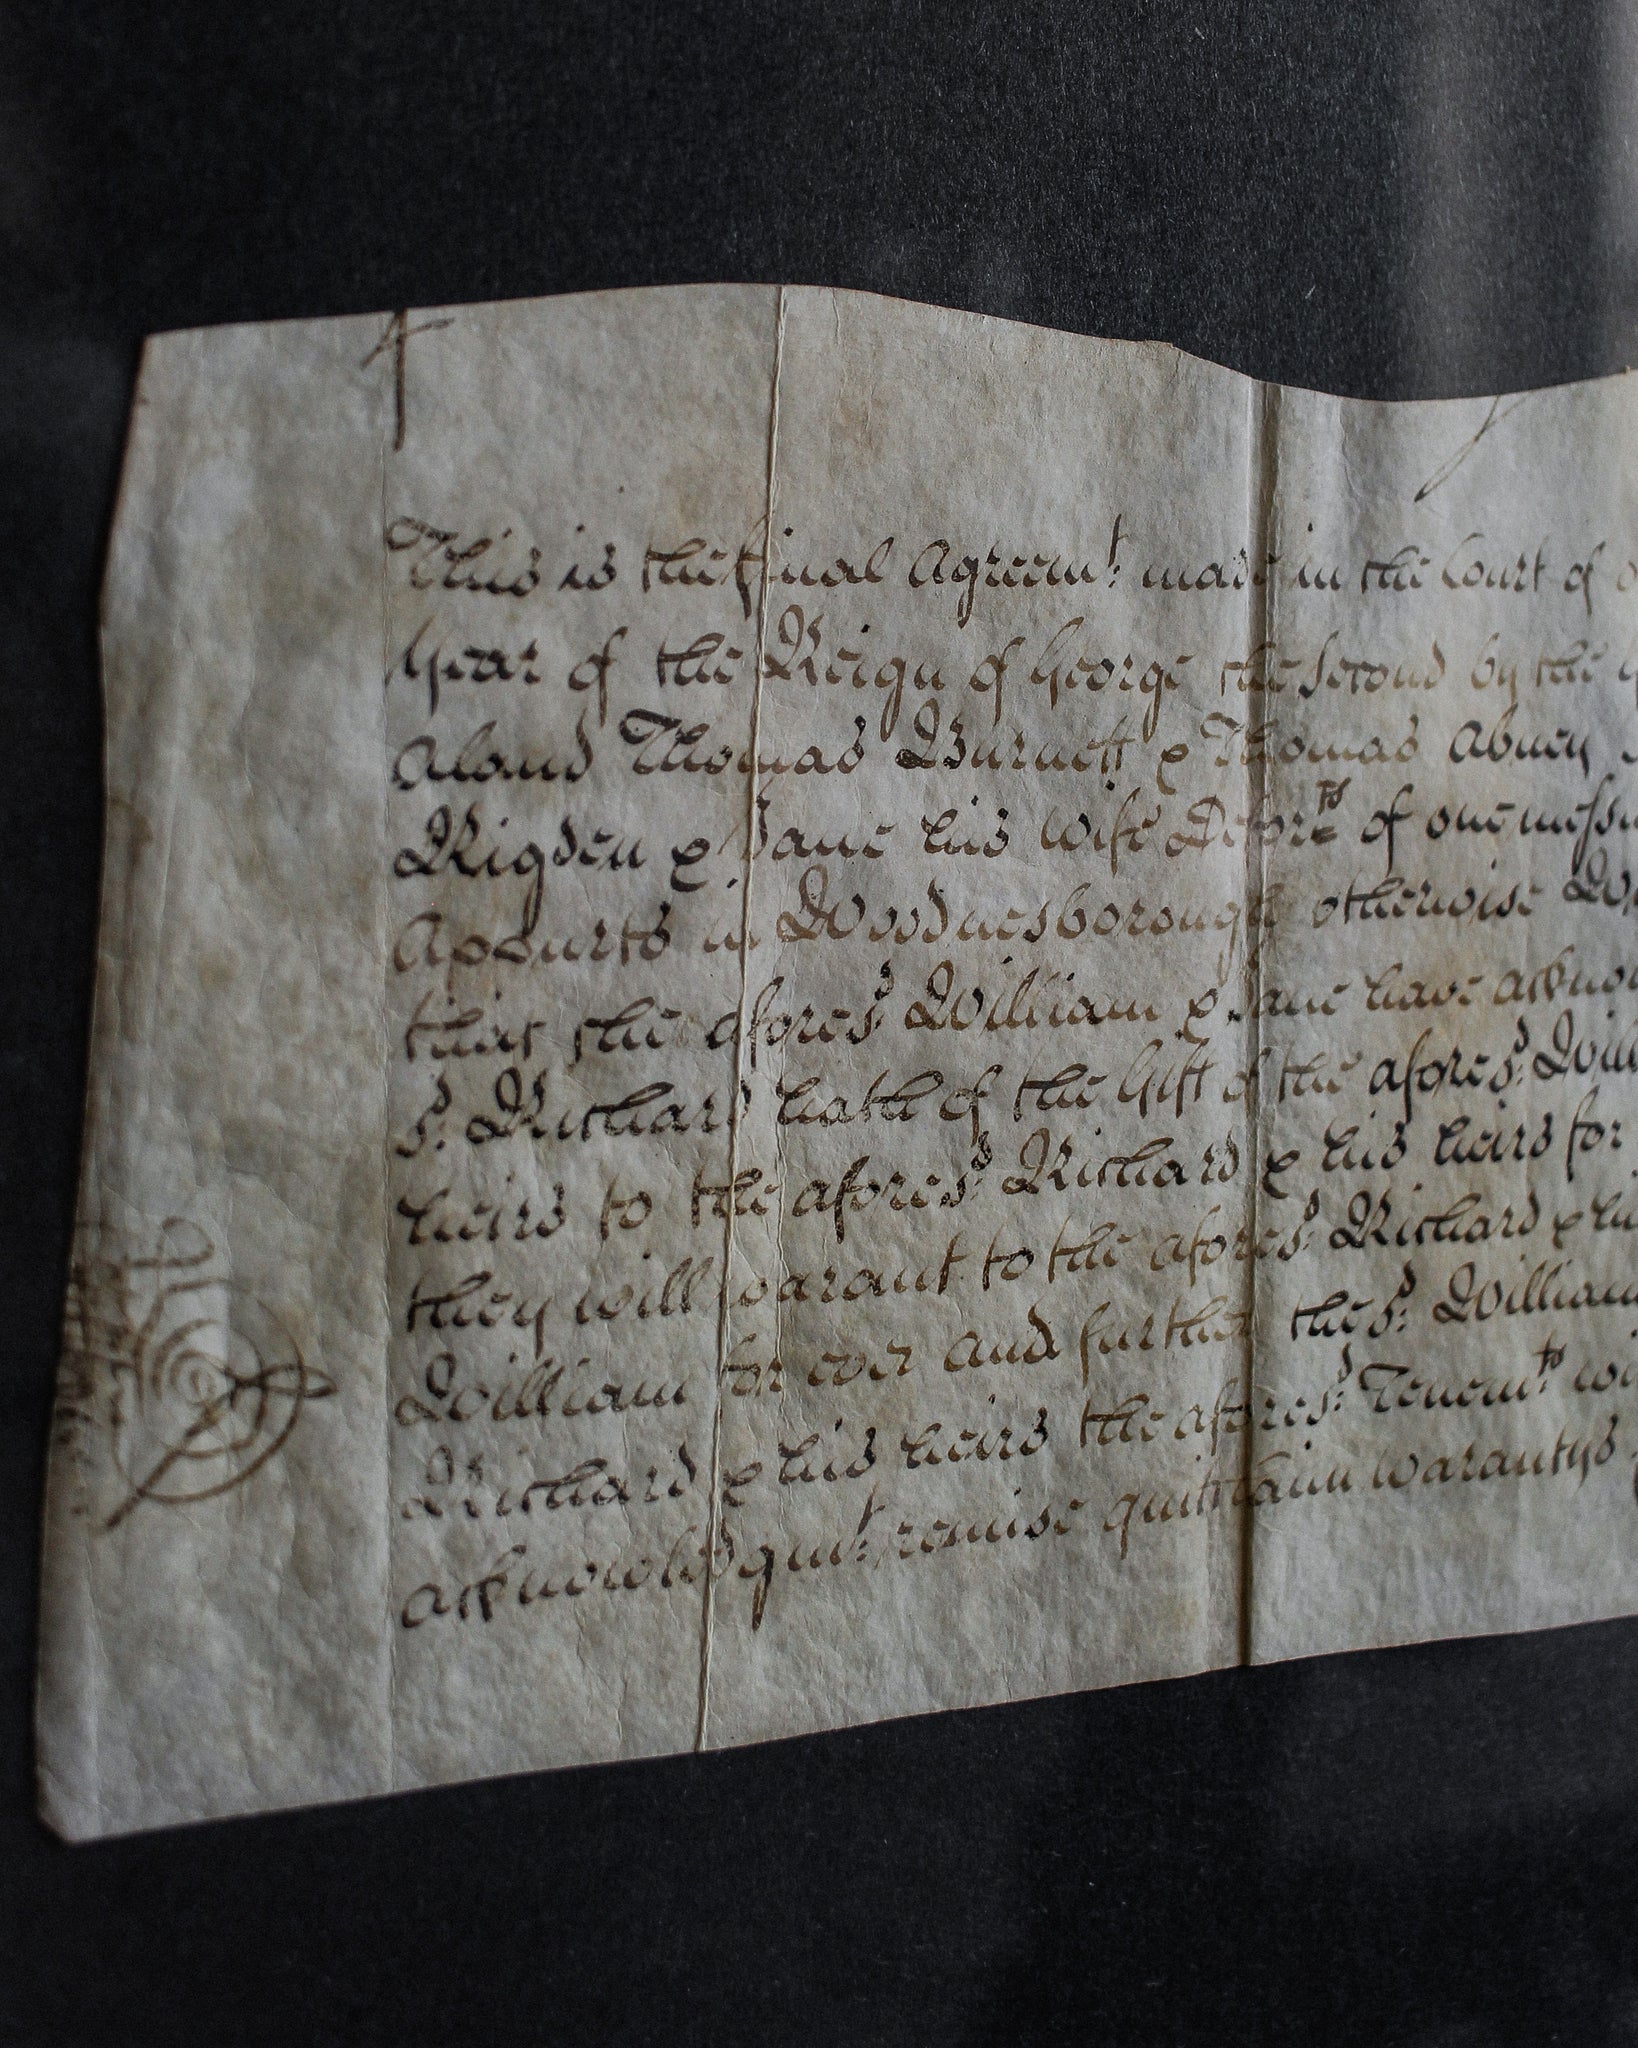 This is the final Agreemt: made in the Court of
Year of the Reign of George the second by the
Aland Thomas Burnett & Thomas Abney
Rigden & Jane his wife Deforts of one messu
Appurts in Woodnesborough otherwise
that the aforesd: William & Jane have acknow
sd: Richard hath of the Gift of the aforesd: Will
heirs to the aforesd: Richard & his heirs for
they will warant to the aforesd: Richard & hi
William for ever and further the sd: William
Richard & his heirs the aforesd: Tenemts: wi
acknowledgmt: remise quitclaim warantys